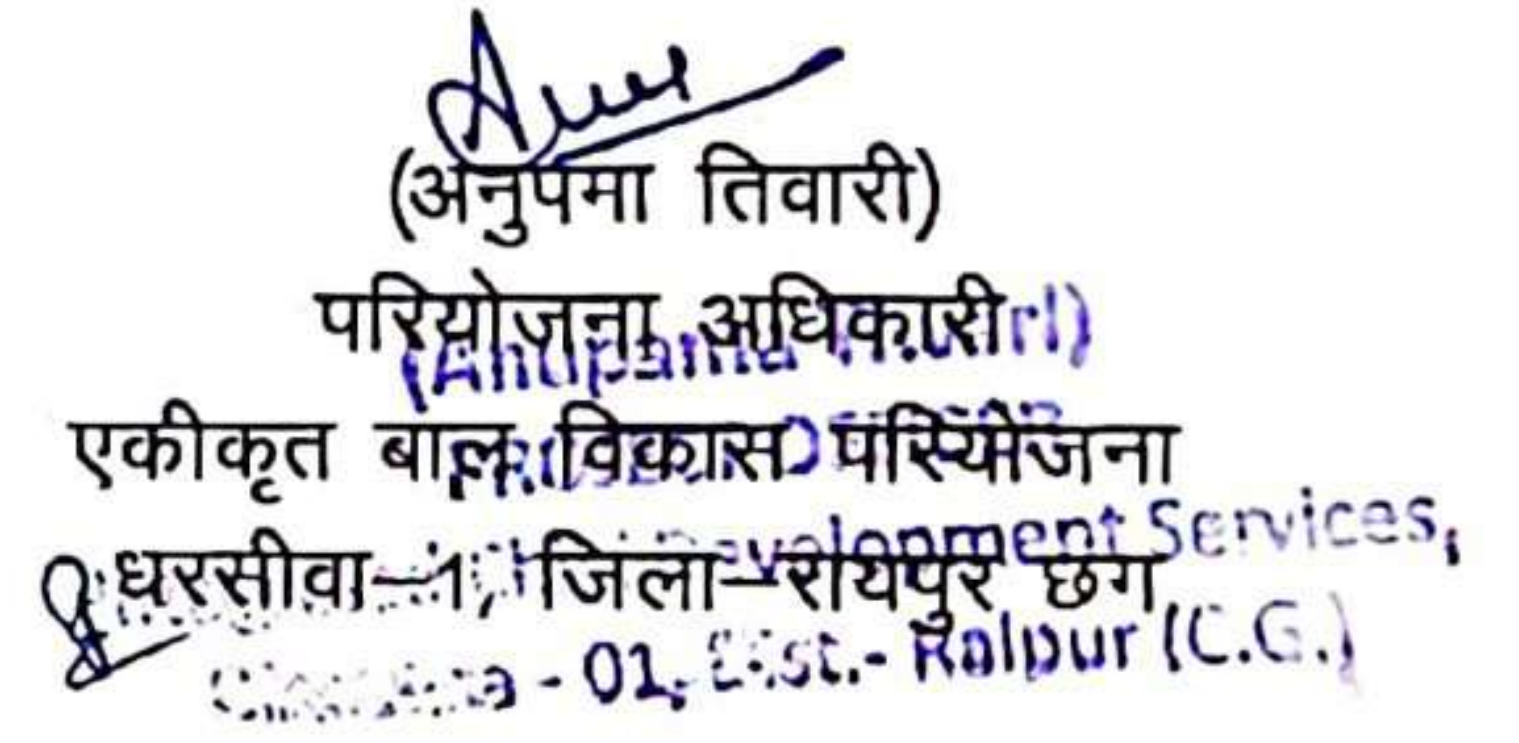 (अनुपमा तिवारी)
परियोजना अधिकारी
एकीकृत बाल विकास परियोजना
धरसीवा–1, जिला–रायपुर छग
(Anupama
Development Services,
- 01, Dist.- Raipur (C.G.)